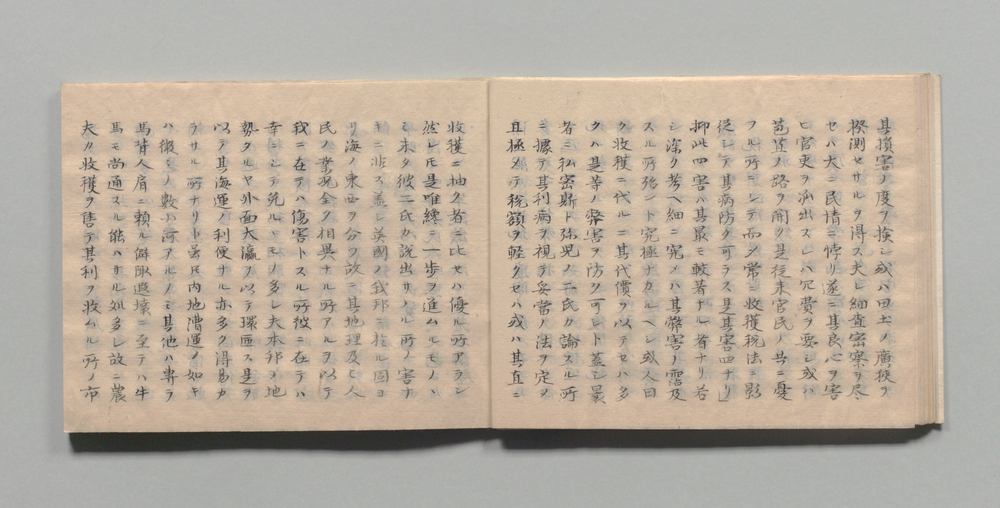 其損害ノ度ヲ検シ或ハ田土ノ廣狹ヲ
揆測セサルヲ得ス夫レ細査密察ヲ尽
セハ大ニ民情ニ悖リ遂ニ其良心ヲ害
ヒ官吏ヲ派出スレハ冗費ヲ要シ或ハ
苞苴ノ路ヲ開ク是従来官民ノ共ニ憂
フル所ニシテ而〆常ニ收獲税法ニ影
従シテ其病防ク可ラス是其害四ナリ
抑此四害ハ其最モ較著ナル者ナリ若
シ深ク考ヘ細ニ究メハ其弊害ノ露及
スル所殆ント究極ナカルヘシ或人曰
ク收獲ニ代ルニ其代價ヲ以テセハ多
クハ是等ノ弊害ヲ防ク可シト蓋シ最
者ニ私密爾ト弥児ノ二氏カ論スル所
ニ據テ其利病ヲ視テ妥當ノ法ヲ定メ
且極メテ税額ヲ軽クセハ或ハ其直ニ
收獲ニ抽ク者ニ比セハ優ル所アラン
然レ𪜈是唯纔ニ一歩ヲ進ムルモノニ
シ未タ彼二氏カ説出サゝル所ノ害ナ
キニ非ス蓋シ英國ノ我邦ニ於ル固ヨ
リ海ノ東西ヲ分ツ故ニ其地理及ヒ人
民ノ業況全ク相異ナル所アルヲ以テ
我ニ在テハ傷害トスル所彼ニ在テハ
幸ニシテ免ルゝモノ多シ夫本邦ノ地
勢タルヤ外面大瀛ヲ以テ環匝ス是ヲ
以テ其海運ノ利便ナル亦多ク得易カ
ラサル所ナリト雖𪜈内地漕運ノ如キ
ハ微々ノ數小河アルノミ其他ハ専ラ
馬背人肩ニ頼ル僻陬遐壌ニ至テハ牛
馬モ尚通スル能ハサル処多シ故ニ農
夫カ收獲ヲ售テ其利ヲ收ムル所ノ市